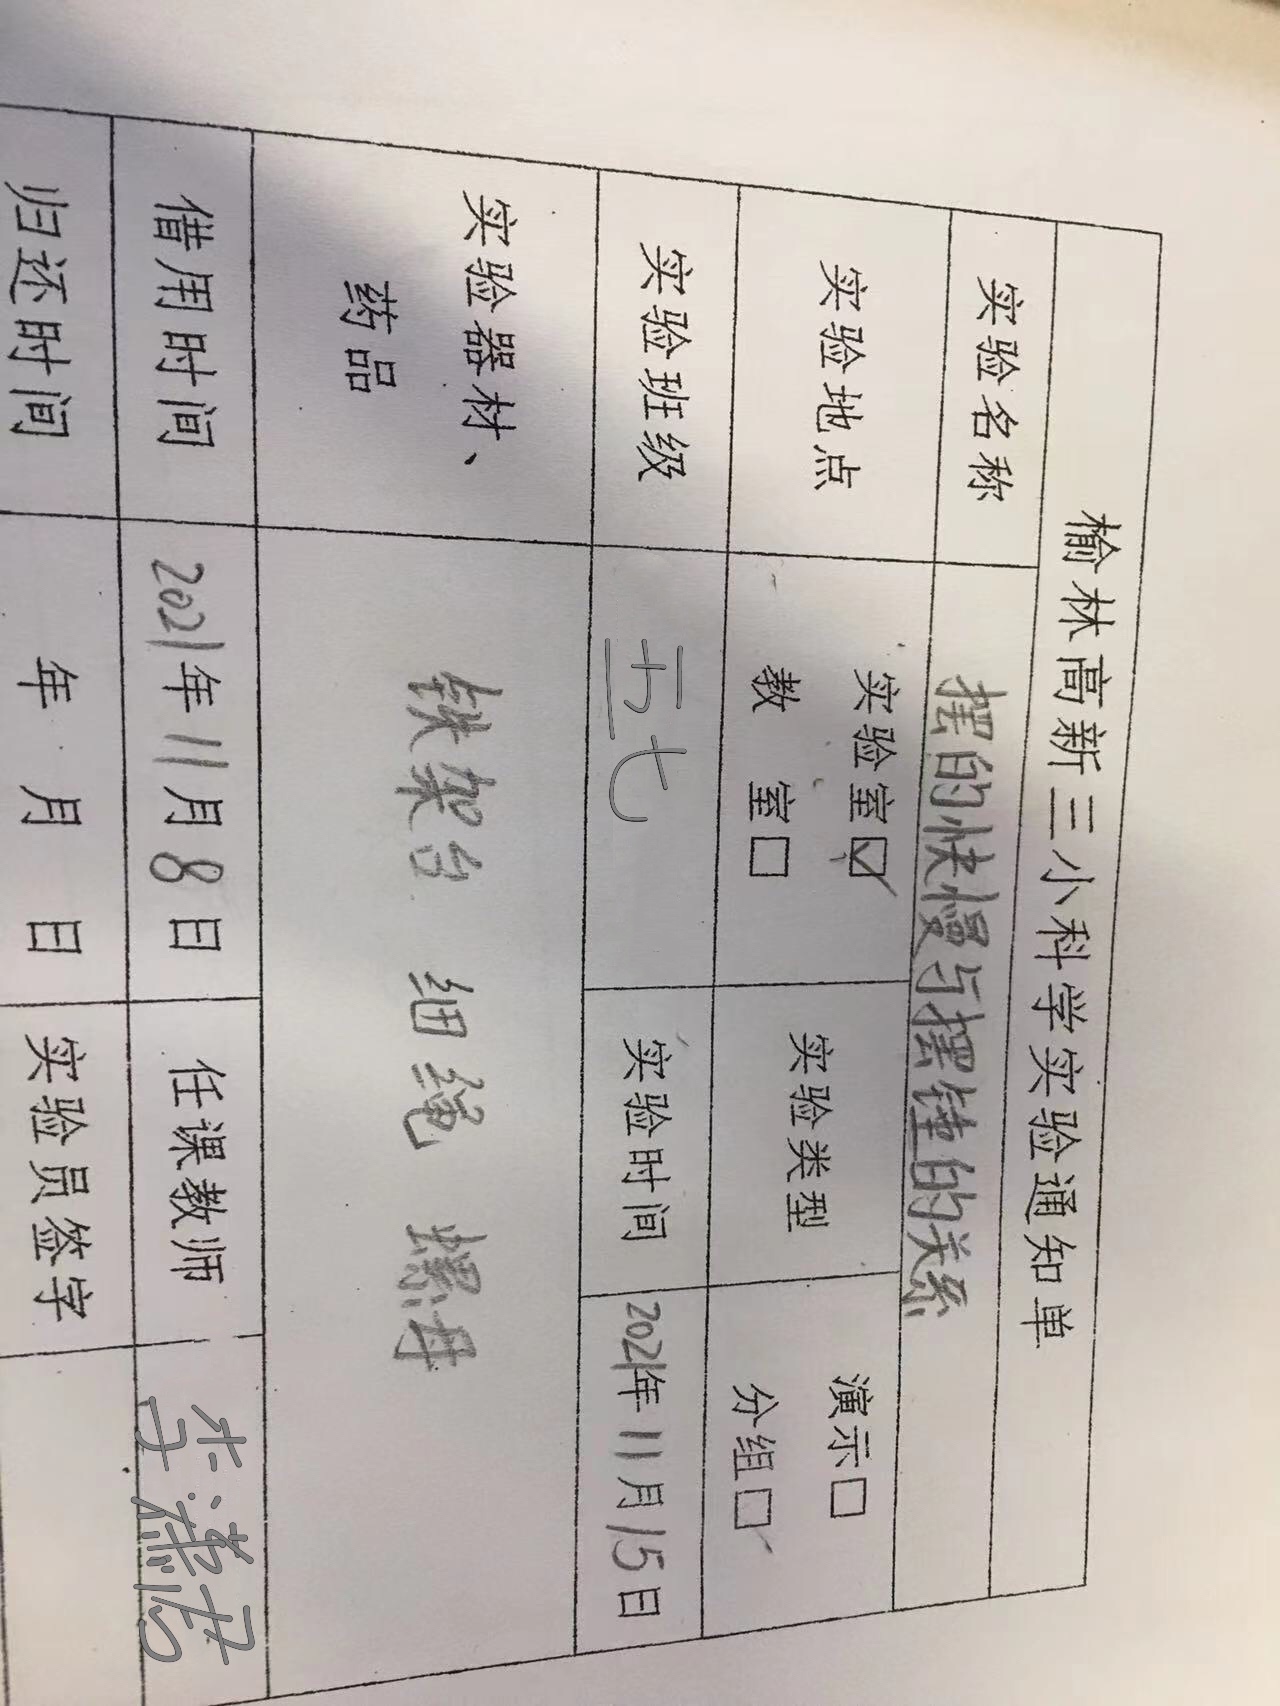 榆林高新三小科学实验通知单
实验名称 摆的快慢与摆锤的关系
实验地点 实验室☑ 教 室□ 实验类型 演示□ 分组□
实验班级 五七 实验时间 2021年11月15日
实验器材、药品 铁架台 细绳 螺母
借用时间 2021年11月8日 任课教师 李
归还时间 年 月 日 实验员签字